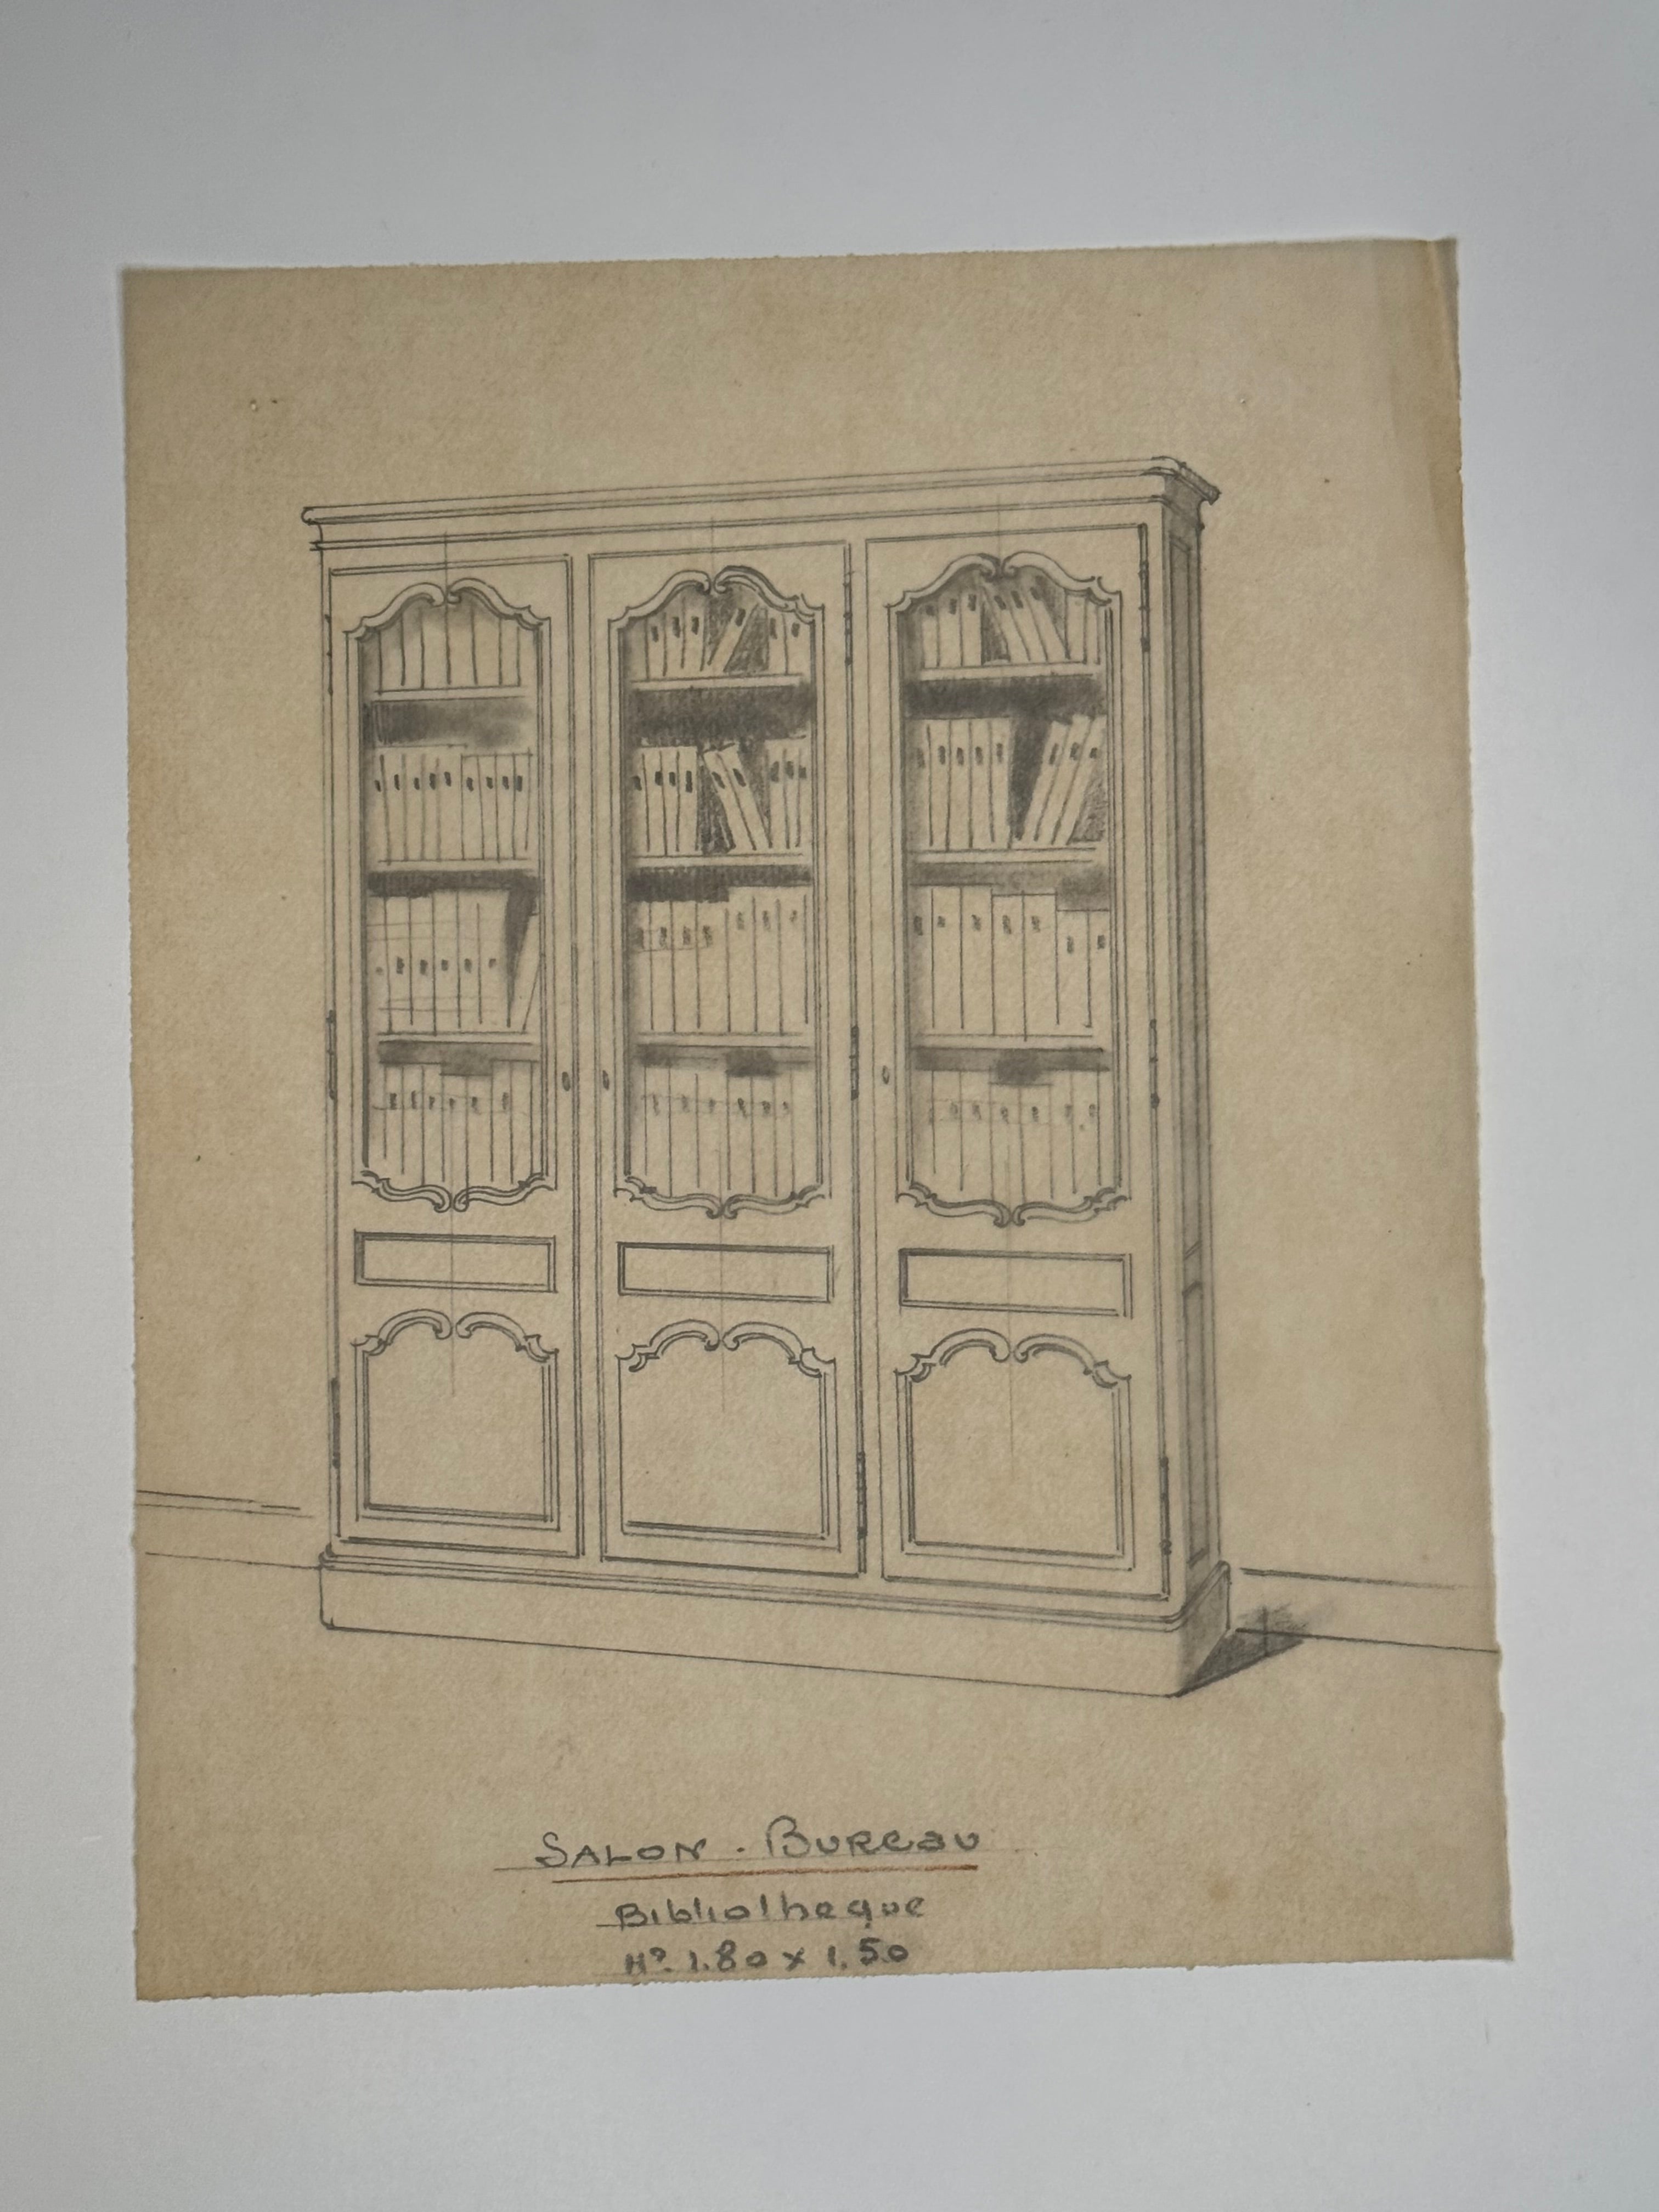 SALON . BUREAU
Bibliotheque
Hr. 1.80 x 1.50